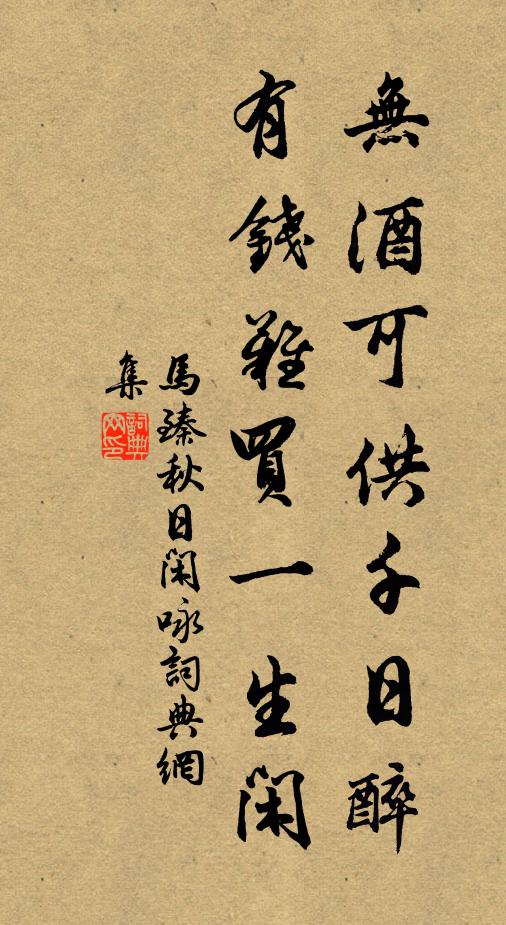 無酒可供千日醉
有錢難買一生閑
馬臻秋日閑咏詞典網
集
詞典
网印